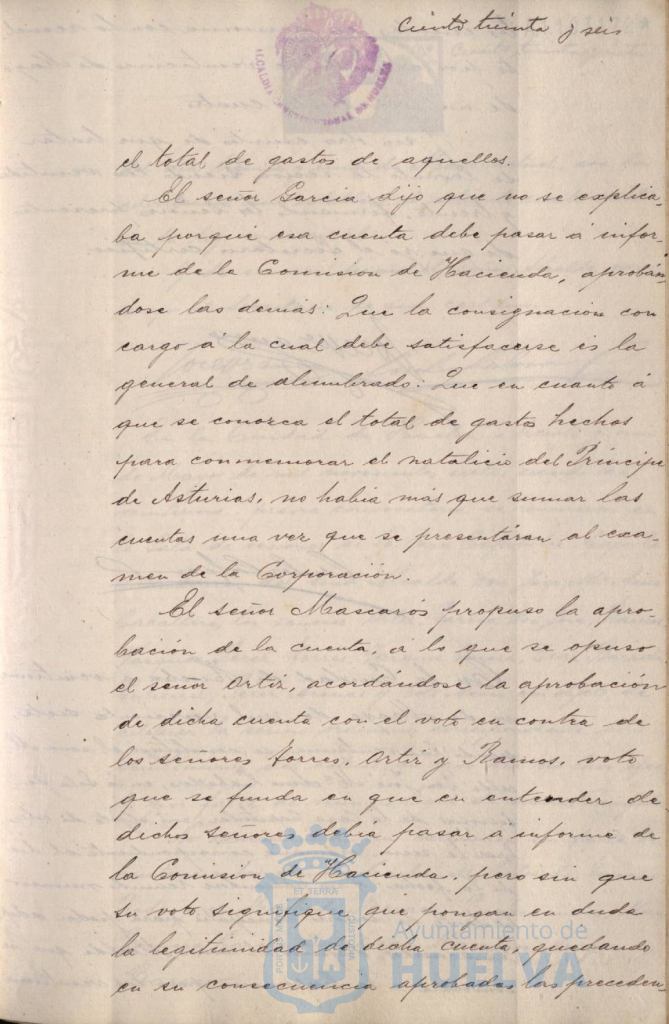 Ciento treinta y seis
ALCALDIA CONSTITUCIONAL DE HUELVA
el total de gastos de aquellos.
El señor Garcia dijo que no se explica-
ba porqué esa cuenta debe pasar á infor-
me de la Comision de Hacienda, aprobán-
dose las demás: Que la consignación con
cargo á la cual debe satisfacerse es la
general de alumbrado: Que en cuanto á
que se conozca el total de gastos hechos
para conmemorar el natalicio del Príncipe
de Asturias, no había más que sumar las
cuentas una vez que se presentáran al exa-
men de la Corporación.
El señor Mascarós propuso la apro-
bación de la cuenta, á lo que se opuso
el señor Ortiz, acordándose la aprobación
de dicha cuenta con el voto en contra de
los señores Torres, Ortiz y Ramos, voto
que se funda en que en entender de
dichos señores debía pasar á informe de
la Comisión de Hacienda, pero sin que
su voto signifique que pongan en duda
la legitimidad de dicha cuenta, quedando
en su consecuencia aprobadas las preceden-
ET TERRA
Ayuntamiento de
HUELVA